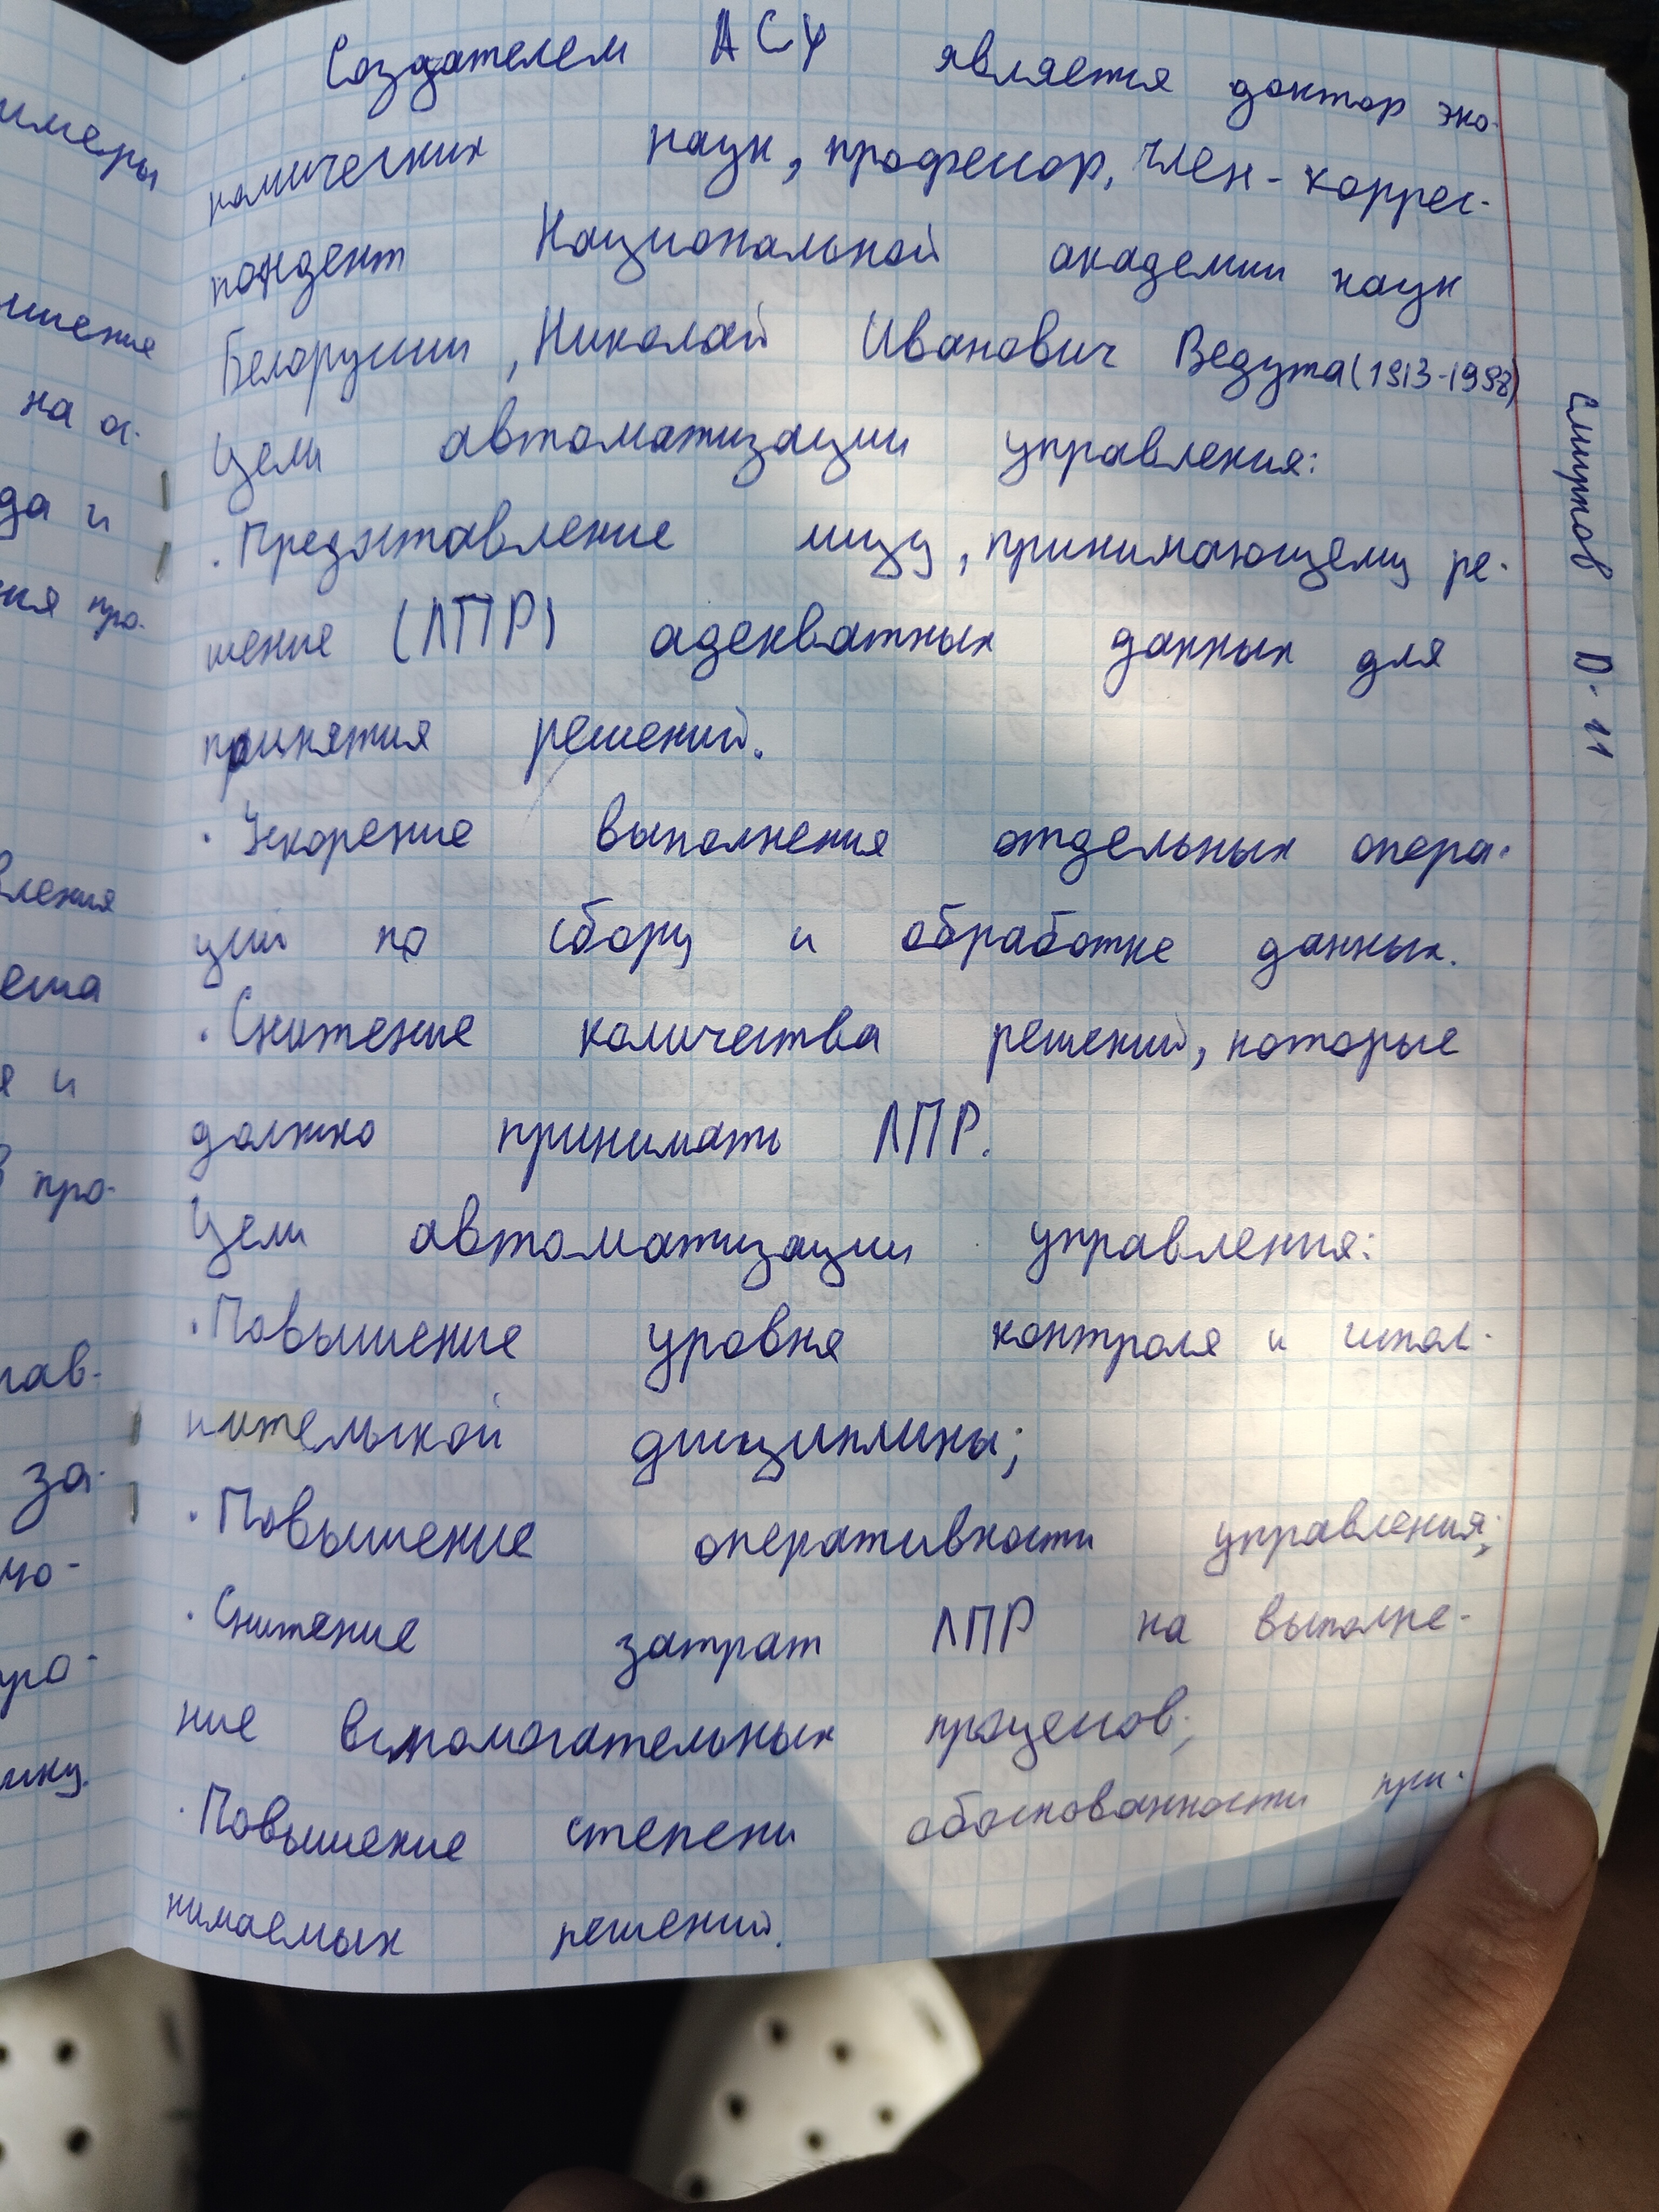 Создателем АСУ является доктор эко-
номических наук, профессор, член-коррес-
пондент Национальной академии наук
Белоруссии, Николай Иванович Ведута (1913-1998)
Цели автоматизации управления:
· Предоставление лицу, принимающему ре-
шение (ЛПР) адекватных данных для
принятия решений.
· Ускорение выполнения отдельных опера-
ций по сбору и обработке данных.
· Снижение количества решений, которые
должно принимать ЛПР.
Цели автоматизации управления:
· Повышение уровня контроля и испол-
нительской дисциплины;
· Повышение оперативности управления;
· Снижение затрат ЛПР на выполне-
ние вспомогательных процессов;
· Повышение степени обоснованности при-
нимаемых решений.
Смирнов D-11
на ос-
да и
ния про-
вления
и
про-
за-